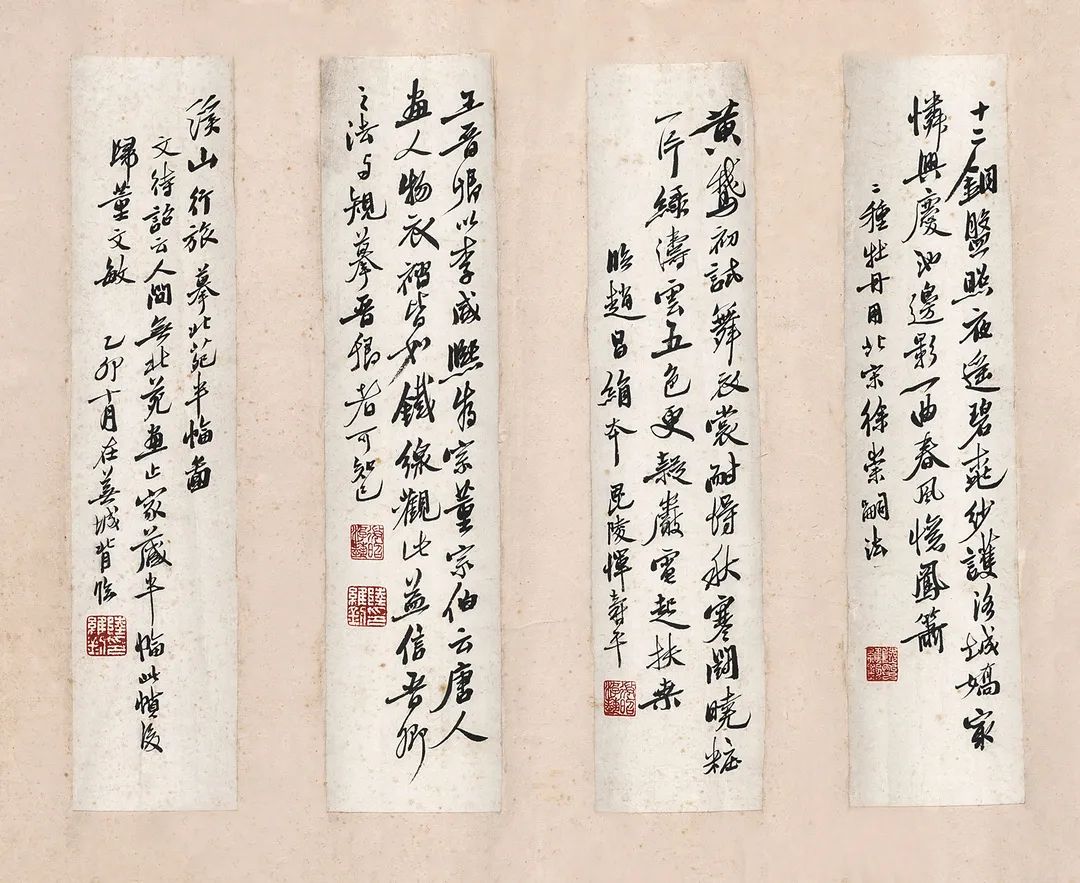 十二銅盤照夜遥碧桃紗護洛城嬌最
憐興慶池邊影一曲春風憶鳳簫
二種牡丹用北宋徐崇嗣法
黃鵞初試舞衣裳耐得秋寒鬪曉粧
一片綠濤雲五色更疑巖電起扶桑
臨趙昌絹本 毘陵惲壽平
王晉卿以李咸熙為宗董宗伯云唐人
畫人物衣褶皆如鐵線觀此益信晉卿
之法与規摹晉卿者可知已
溪山行旅 摹北苑半幅圖
文待詔云人間無北苑畫止家藏半幅此幀後
歸董文敏
乙卯十月在蕪城背臨